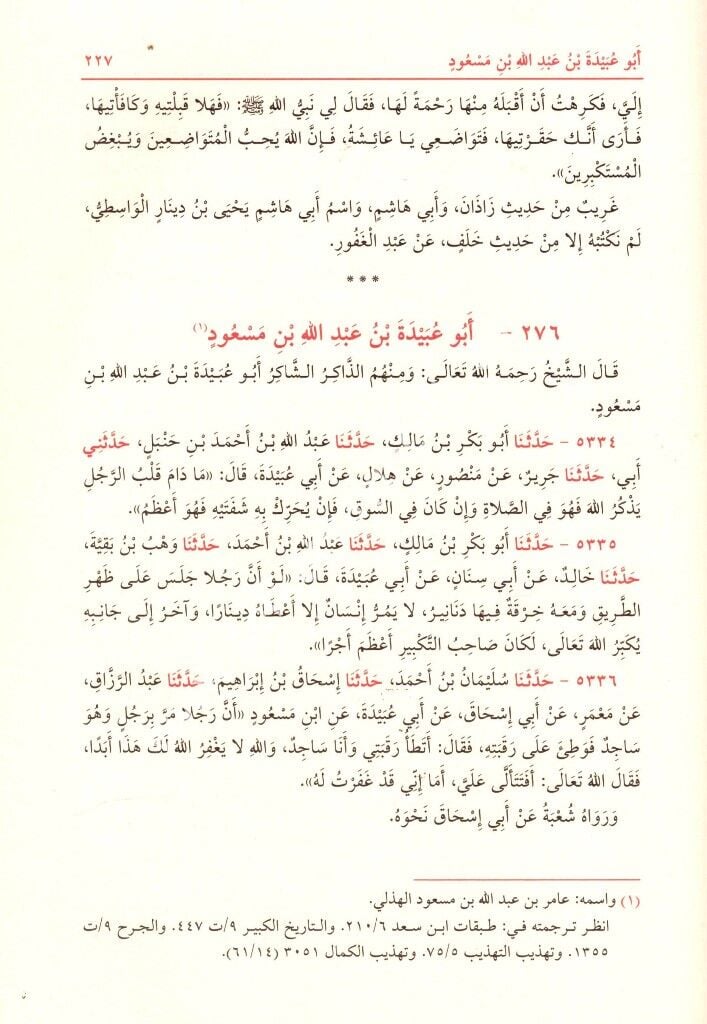 أَبُو عُبَيْدَةَ بْنُ عَبْدِ اللهِ بْنِ مَسْعُودٍ ٢٢٧
إِلَيَّ، فَكَرِهْتُ أَنْ أَقْبَلَهُ مِنْهَا رَحْمَةً لَهَا، فَقَالَ لِي نَبِيُّ اللهِ ﷺ: «فَهَلا قَبِلْتِيهِ وَكَافَأْتِيهَا،
فَأَرَى أَنَّكِ حَقَرْتِيهَا، فَتَوَاضَعِي يَا عَائِشَةُ، فَإِنَّ اللهَ يُحِبُّ الْمُتَوَاضِعِينَ وَيُبْغِضُ
الْمُسْتَكْبِرِينَ».
غَرِيبٌ مِنْ حَدِيثِ زَاذَانَ، وَأَبِي هَاشِمٍ، وَاسْمُ أَبِي هَاشِمٍ يَحْيَى بْنُ دِينَارٍ الْوَاسِطِيُّ،
لَمْ نَكْتُبْهُ إِلا مِنْ حَدِيثِ خَلَفٍ، عَنْ عَبْدِ الْغَفُورِ.
***
٢٧٦ - أَبُو عُبَيْدَةَ بْنُ عَبْدِ اللهِ بْنِ مَسْعُودٍ(١)
قَالَ الشَّيْخُ رَحِمَهُ اللهُ تَعَالَى: وَمِنْهُمُ الذَّاكِرُ الشَّاكِرُ أَبُو عُبَيْدَةَ بْنُ عَبْدِ اللهِ بْنِ
مَسْعُودٍ.
٥٣٣٤ - حَدَّثَنَا أَبُو بَكْرِ بْنُ مَالِكٍ، حَدَّثَنَا عَبْدُ اللهِ بْنُ أَحْمَدَ بْنِ حَنْبَلٍ، حَدَّثَنِي
أَبِي، حَدَّثَنَا جَرِيرٌ، عَنْ مَنْصُورٍ، عَنْ هِلالٍ، عَنْ أَبِي عُبَيْدَةَ، قَالَ: «مَا دَامَ قَلْبُ الرَّجُلِ
يَذْكُرُ اللهَ فَهُوَ فِي الصَّلاةِ وَإِنْ كَانَ فِي السُّوقِ، فَإِنْ يُحَرِّكْ بِهِ شَفَتَيْهِ فَهُوَ أَعْظَمُ».
٥٣٣٥ - حَدَّثَنَا أَبُو بَكْرِ بْنُ مَالِكٍ، حَدَّثَنَا عَبْدُ اللهِ بْنُ أَحْمَدَ، حَدَّثَنَا وَهْبُ بْنُ بَقِيَّةَ،
حَدَّثَنَا خَالِدٌ، عَنْ أَبِي سِنَانٍ، عَنْ أَبِي عُبَيْدَةَ، قَالَ: «لَوْ أَنَّ رَجُلا جَلَسَ عَلَى ظَهْرِ
الطَّرِيقِ وَمَعَهُ خِرْقَةٌ فِيهَا دَنَانِيرُ، لا يَمُرُّ إِنْسَانٌ إِلا أَعْطَاهُ دِينَارًا، وَآخَرُ إِلَى جَانِبِهِ
يُكَبِّرُ اللهَ تَعَالَى، لَكَانَ صَاحِبُ التَّكْبِيرِ أَعْظَمَ أَجْرًا».
٥٣٣٦ - حَدَّثَنَا سُلَيْمَانُ بْنُ أَحْمَدَ، حَدَّثَنَا إِسْحَاقُ بْنُ إِبْرَاهِيمَ، حَدَّثَنَا عَبْدُ الرَّزَّاقِ،
عَنْ مَعْمَرٍ، عَنْ أَبِي إِسْحَاقَ، عَنْ أَبِي عُبَيْدَةَ، عَنِ ابْنِ مَسْعُودٍ «أَنَّ رَجُلا مَرَّ بِرَجُلٍ وَهُوَ
سَاجِدٌ فَوَطِئَ عَلَى رَقَبَتِهِ، فَقَالَ: أَتَطَأُ رَقَبَتِي وَأَنَا سَاجِدٌ، وَاللهِ لا يَغْفِرُ اللهُ لَكَ هَذَا أَبَدًا،
فَقَالَ اللهُ تَعَالَى: أَفَتَتَأَلَّى عَلَيَّ، أَمَا إِنِّي قَدْ غَفَرْتُ لَهُ».
وَرَوَاهُ شُعْبَةُ عَنْ أَبِي إِسْحَاقَ نَحْوَهُ.
(١) واسمه: عامر بن عبد الله بن مسعود الهذلي.
انظر ترجمته في: طبقات ابن سعد ٦/٢١٠. والتاريخ الكبير ٩/ت ٤٤٧. والجرح ٩/ت
١٣٥٥. وتهذيب التهذيب ٥/٧٥. وتهذيب الكمال ٣٠٥١ (١٤/٦١).